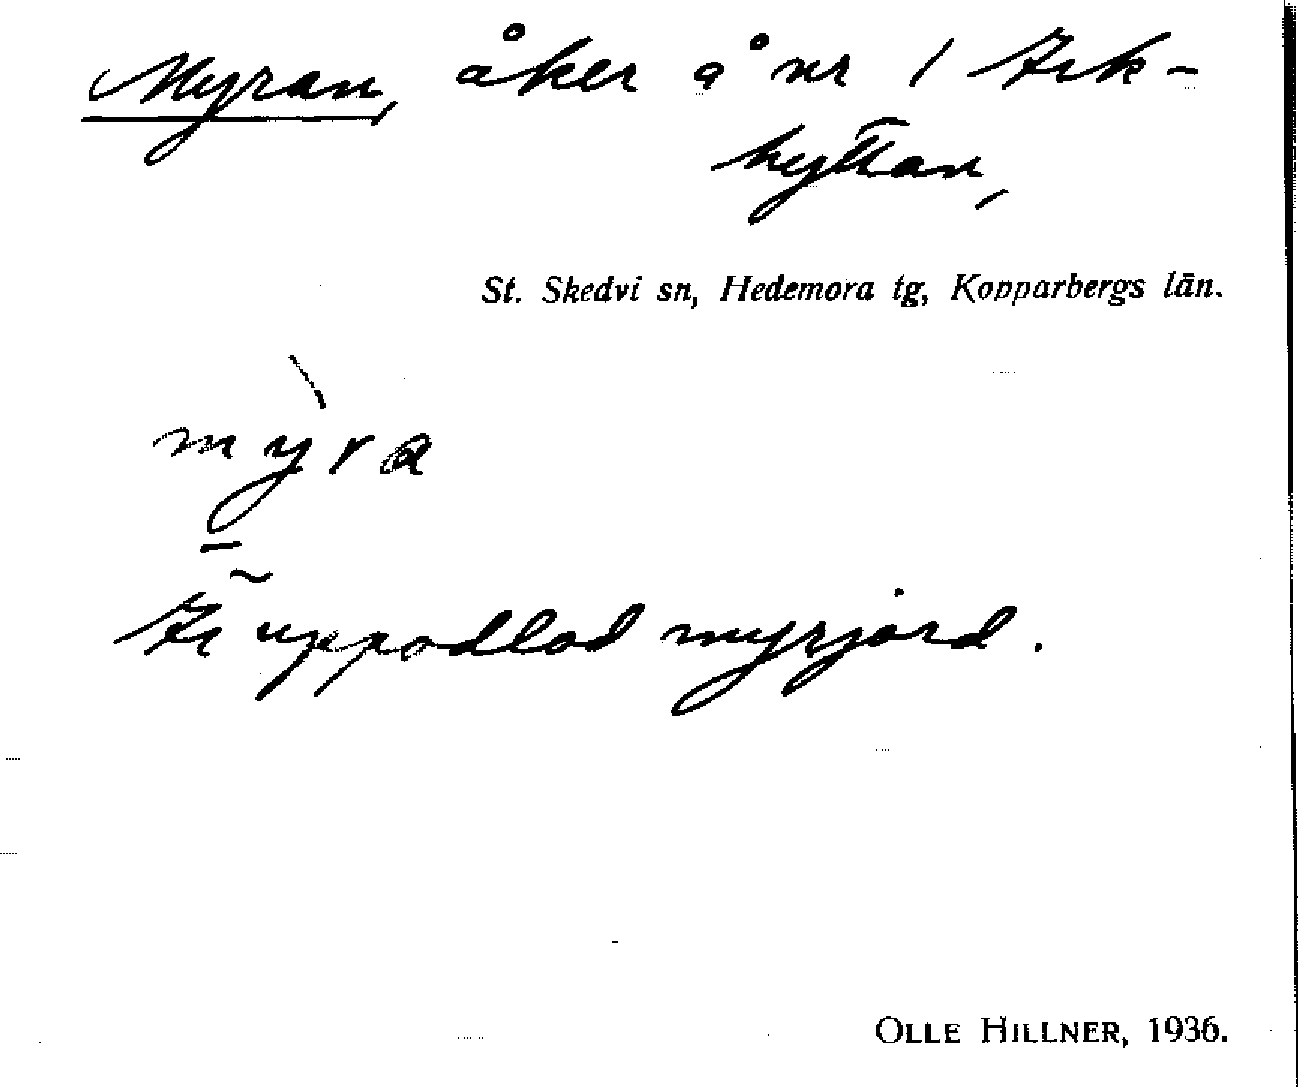 Myran, åker å nr 1 Ark-
hyttan,
St. Skedvi sn, Hedemora tg, Kopparbergs län.
mỳra
Är uppodlad myrjord.
OLLE HILLNER, 1936.